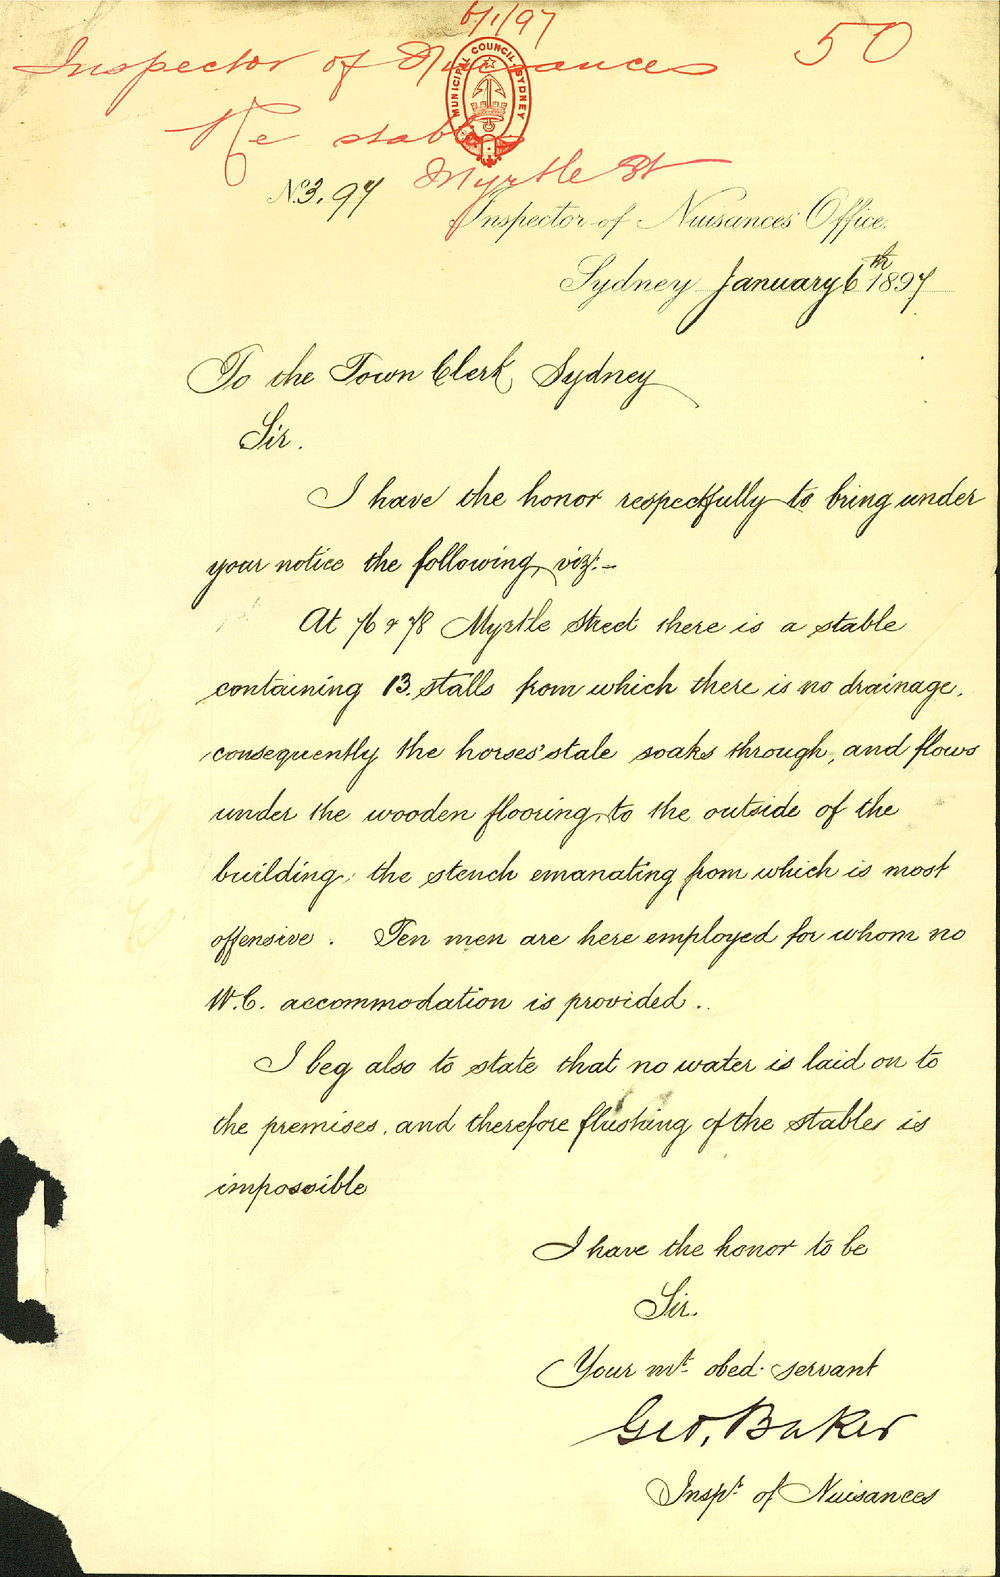 6/1/97
Inspector of Nuisances 50
MUNICIPAL COUNCIL, SYDNEY
Re stable
Myrtle St
No. 3. 97
Inspector of Nuisances' Office.
Sydney January 6th 1897
To the Town Clerk, Sydney
Sir.
I have the honor respectfully to bring under
your notice the following, viz:-
At 76 & 78 Myrtle Street there is a stable
containing 13. stalls from which there is no drainage,
consequently the horses' stale soaks through, and flows
under the wooden flooring, to the outside of the
building; the stench emanating from which is most
offensive. Ten men are here employed for whom no
W.C. accommodation is provided..
I beg also to state that no water is laid on to
the premises, and therefore flushing of the stables is
impossible
I have the honor to be
Sir.
Your mt. obed. servant
Geo. Baker
Inspr. of Nuisances